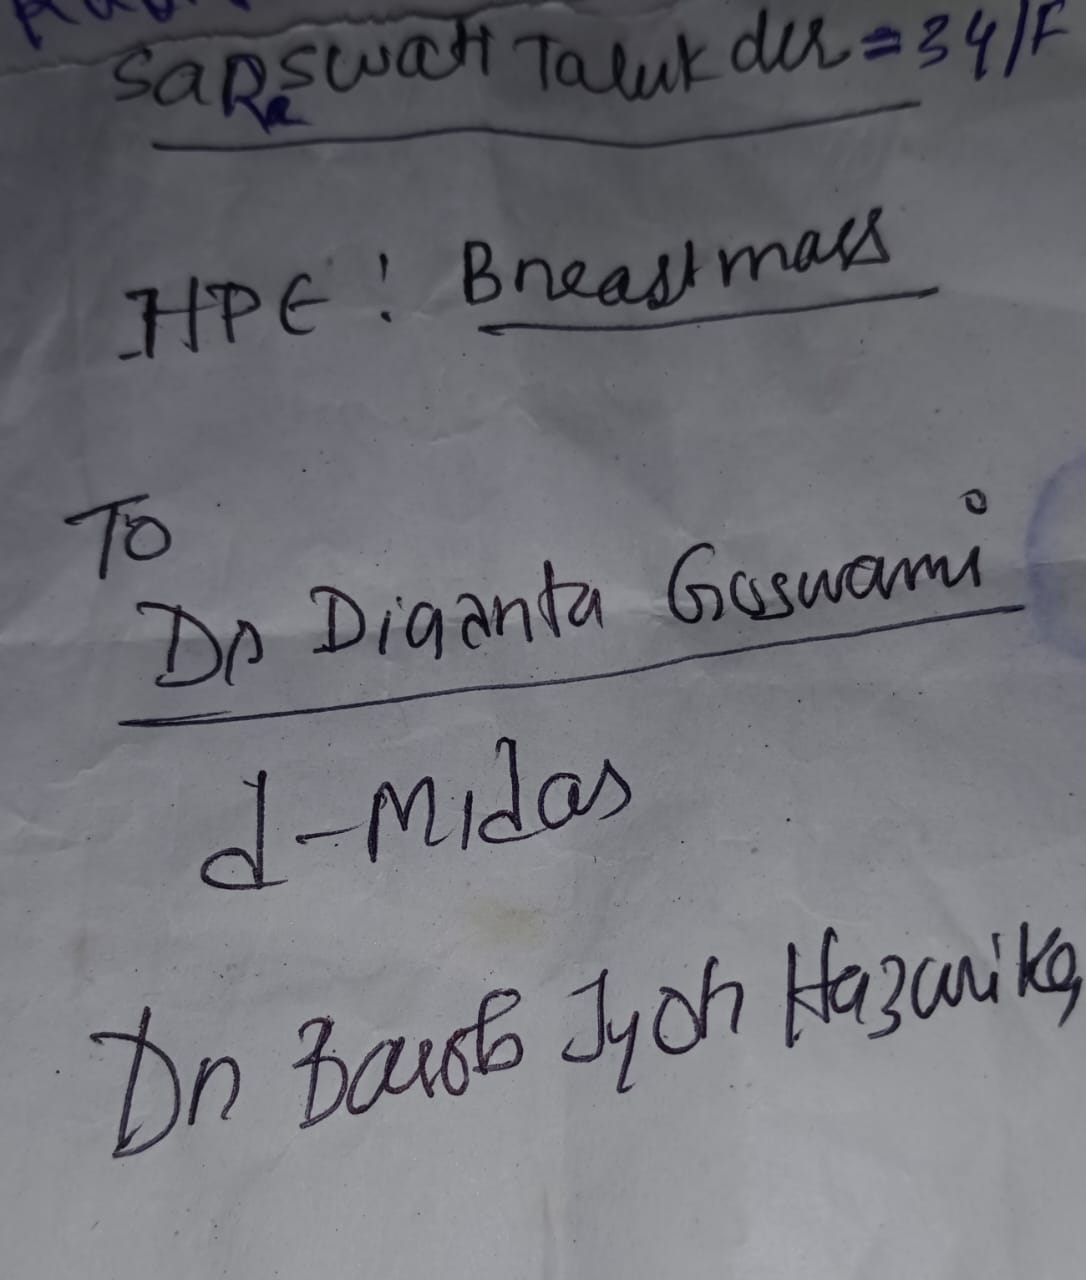 Saraswati Talukder = 34/F
HPE: Breast mass
To
Dr Diganta Goswami
d-Midas
Dr Jyoti Hazarika